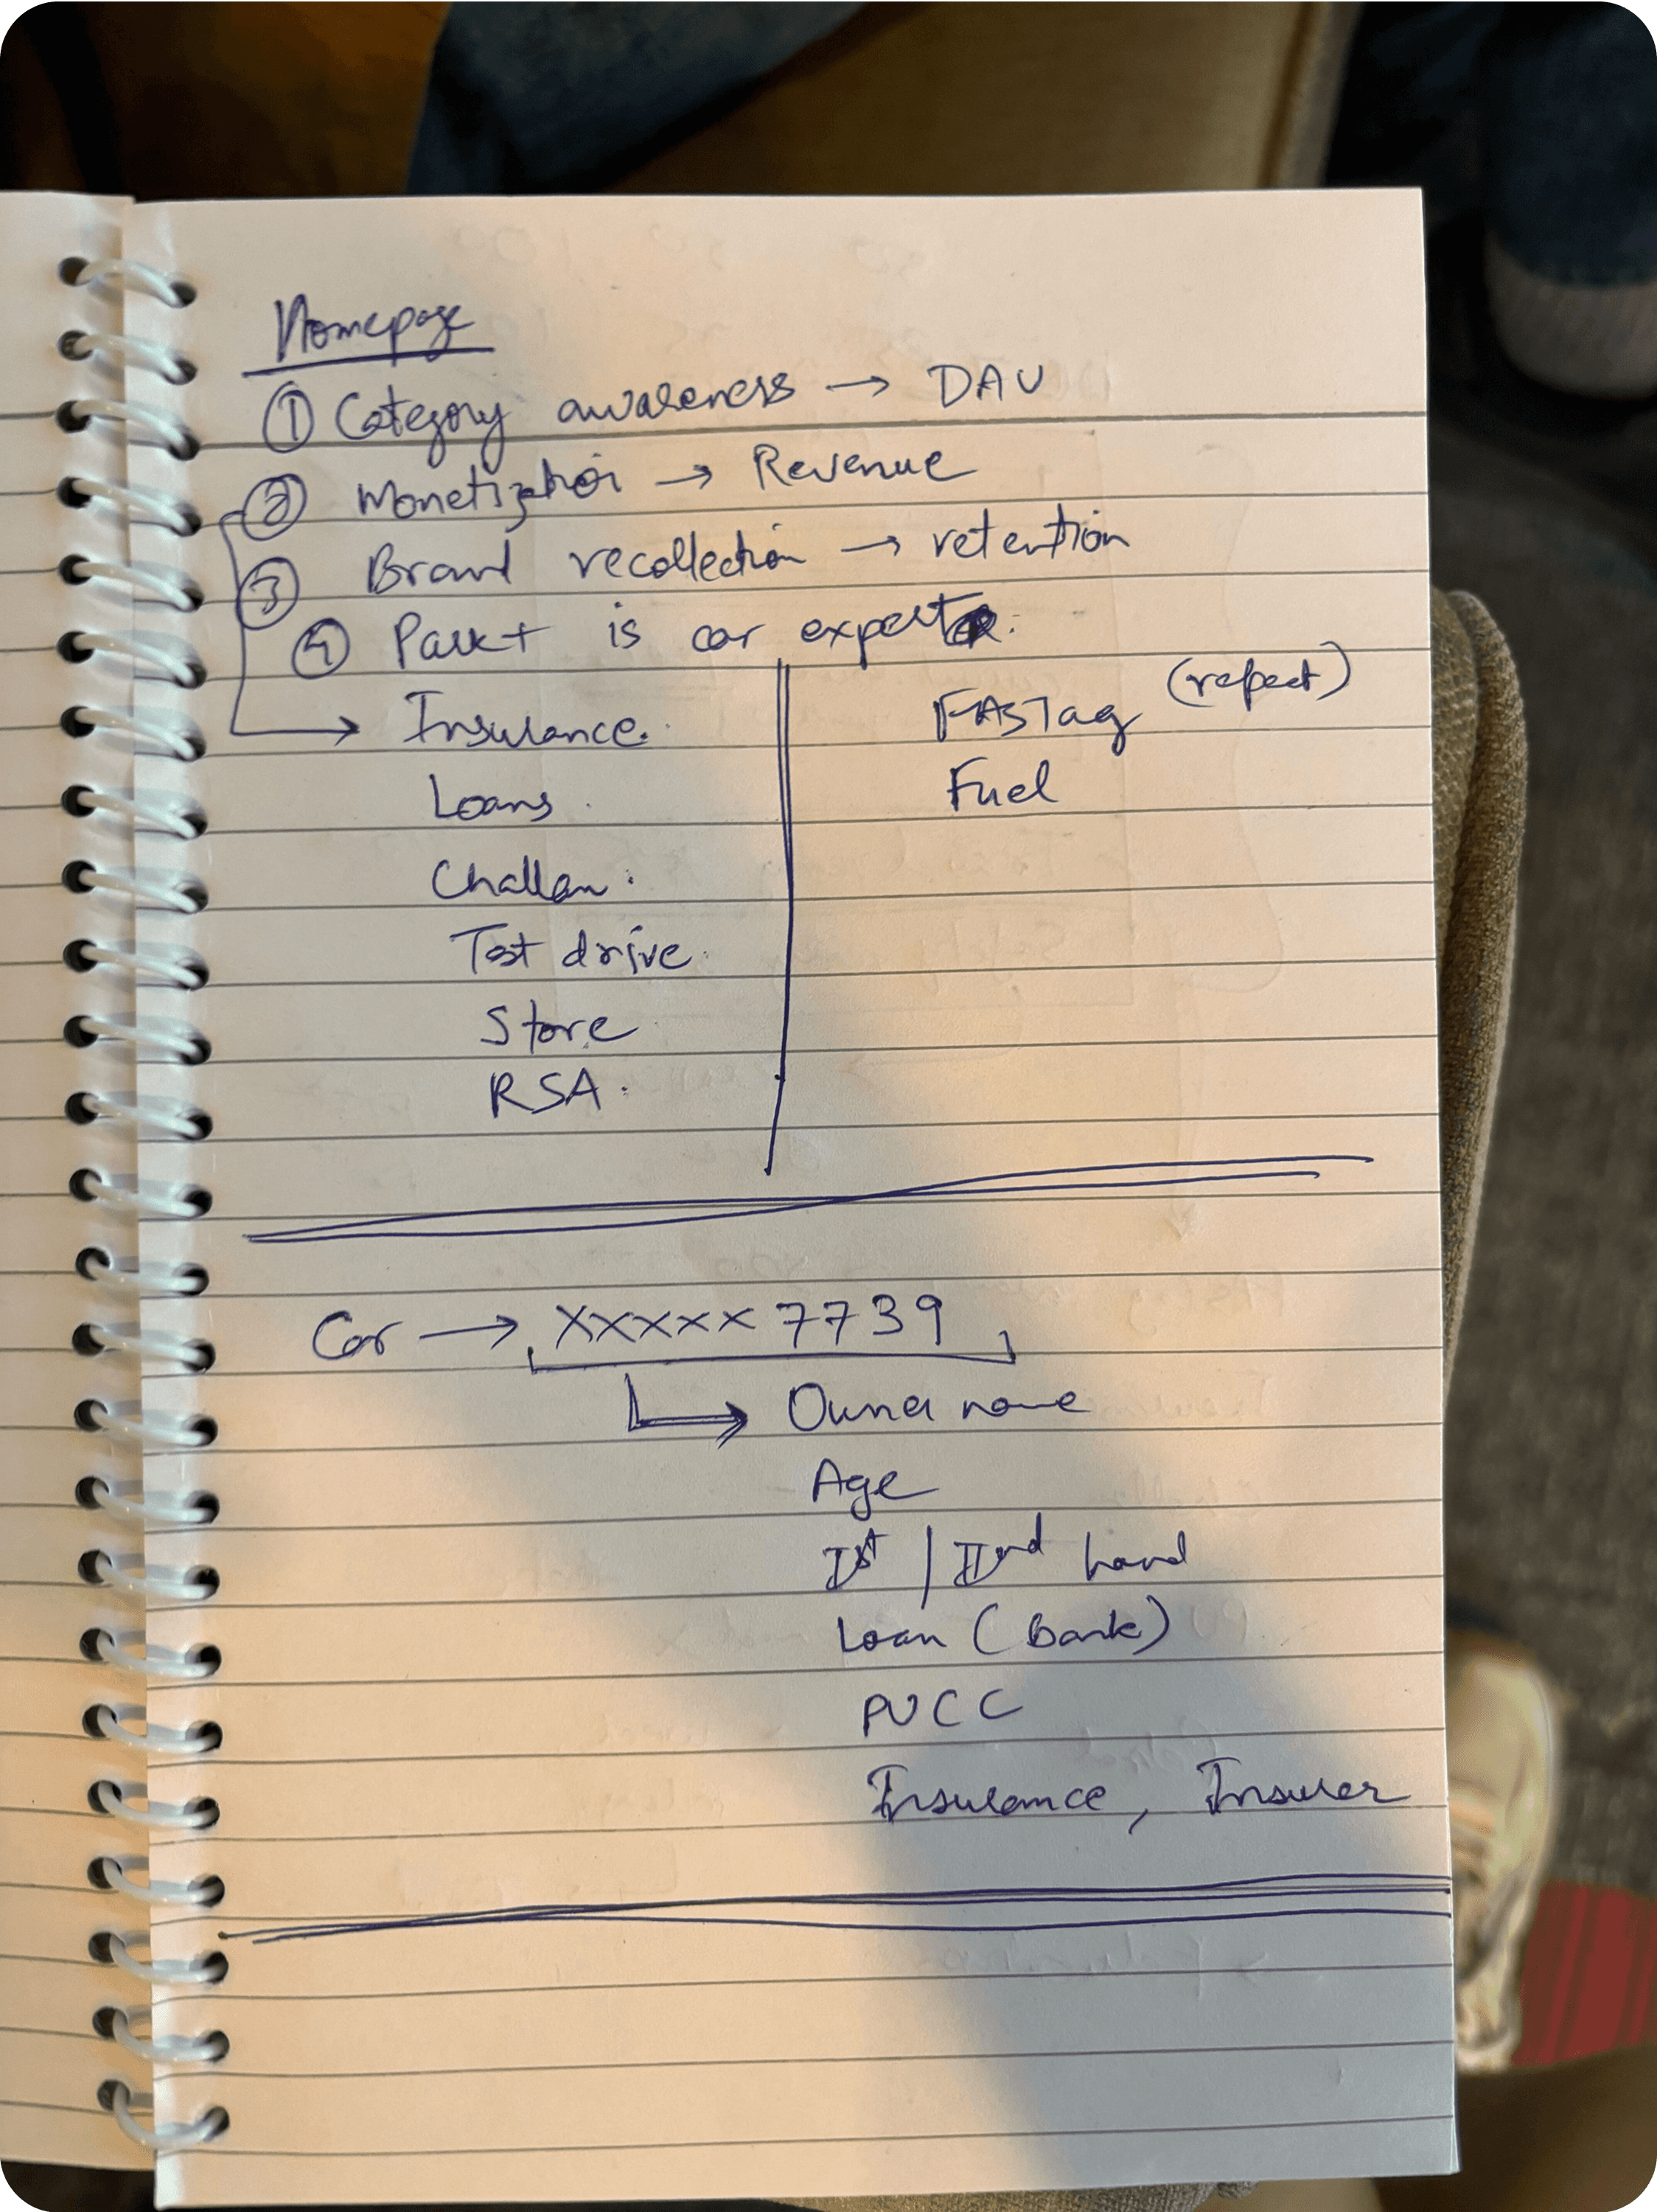 Homepage
① Category awareness → DAU
② Monetization → Revenue
③ Brand recollection → retention
④ Park+ is car expert
→ Insurance. FASTag (repeat)
Loans Fuel
Challan
Test drive
Store
RSA
Car → XXXXX7739
→ Owner name
Age
Ist / IInd hand
Loan (Bank)
PUCC
Insurance, Insurer